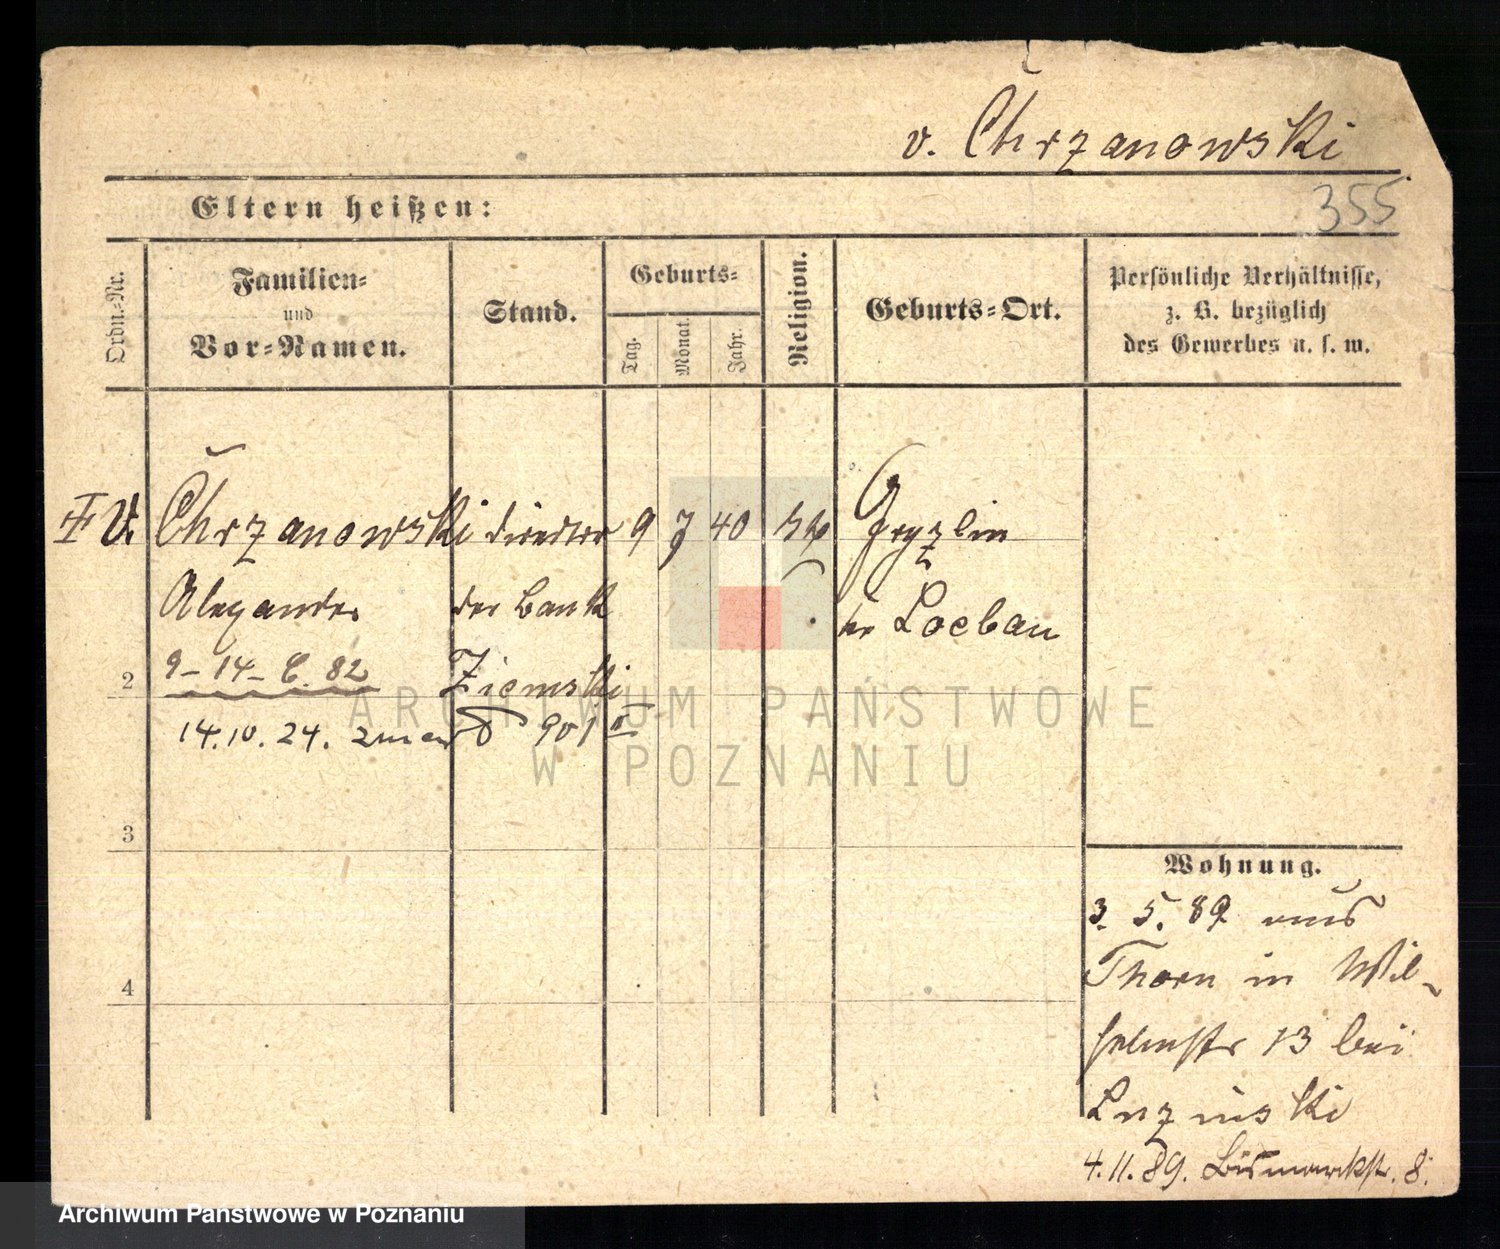 v. Chrzanowski
355
Eltern heißen:
Ordn.-Nr.
Familien-
und
Vor-Namen.
Stand.
Geburts-
Tag.
Monat.
Jahr.
Religion.
Geburts-Ort.
Persönliche Verhältnisse,
z. B. bezüglich
des Gewerbes u. s. w.
V. Chrzanowski
Director
9 7 40
Alexander
der Bank
Loebau
9-14- C. 82
Ziemski
2
14.10.24.
901 II
3
4
Wohnung.
3. 5. 89 aus
Thorn in Wil-
helmstr 13 bei
4.11.89. Bismarckstr. 8.
ARCHIWUM PAŃSTWOWE
W POZNANIU
Archiwum Państwowe w Poznaniu